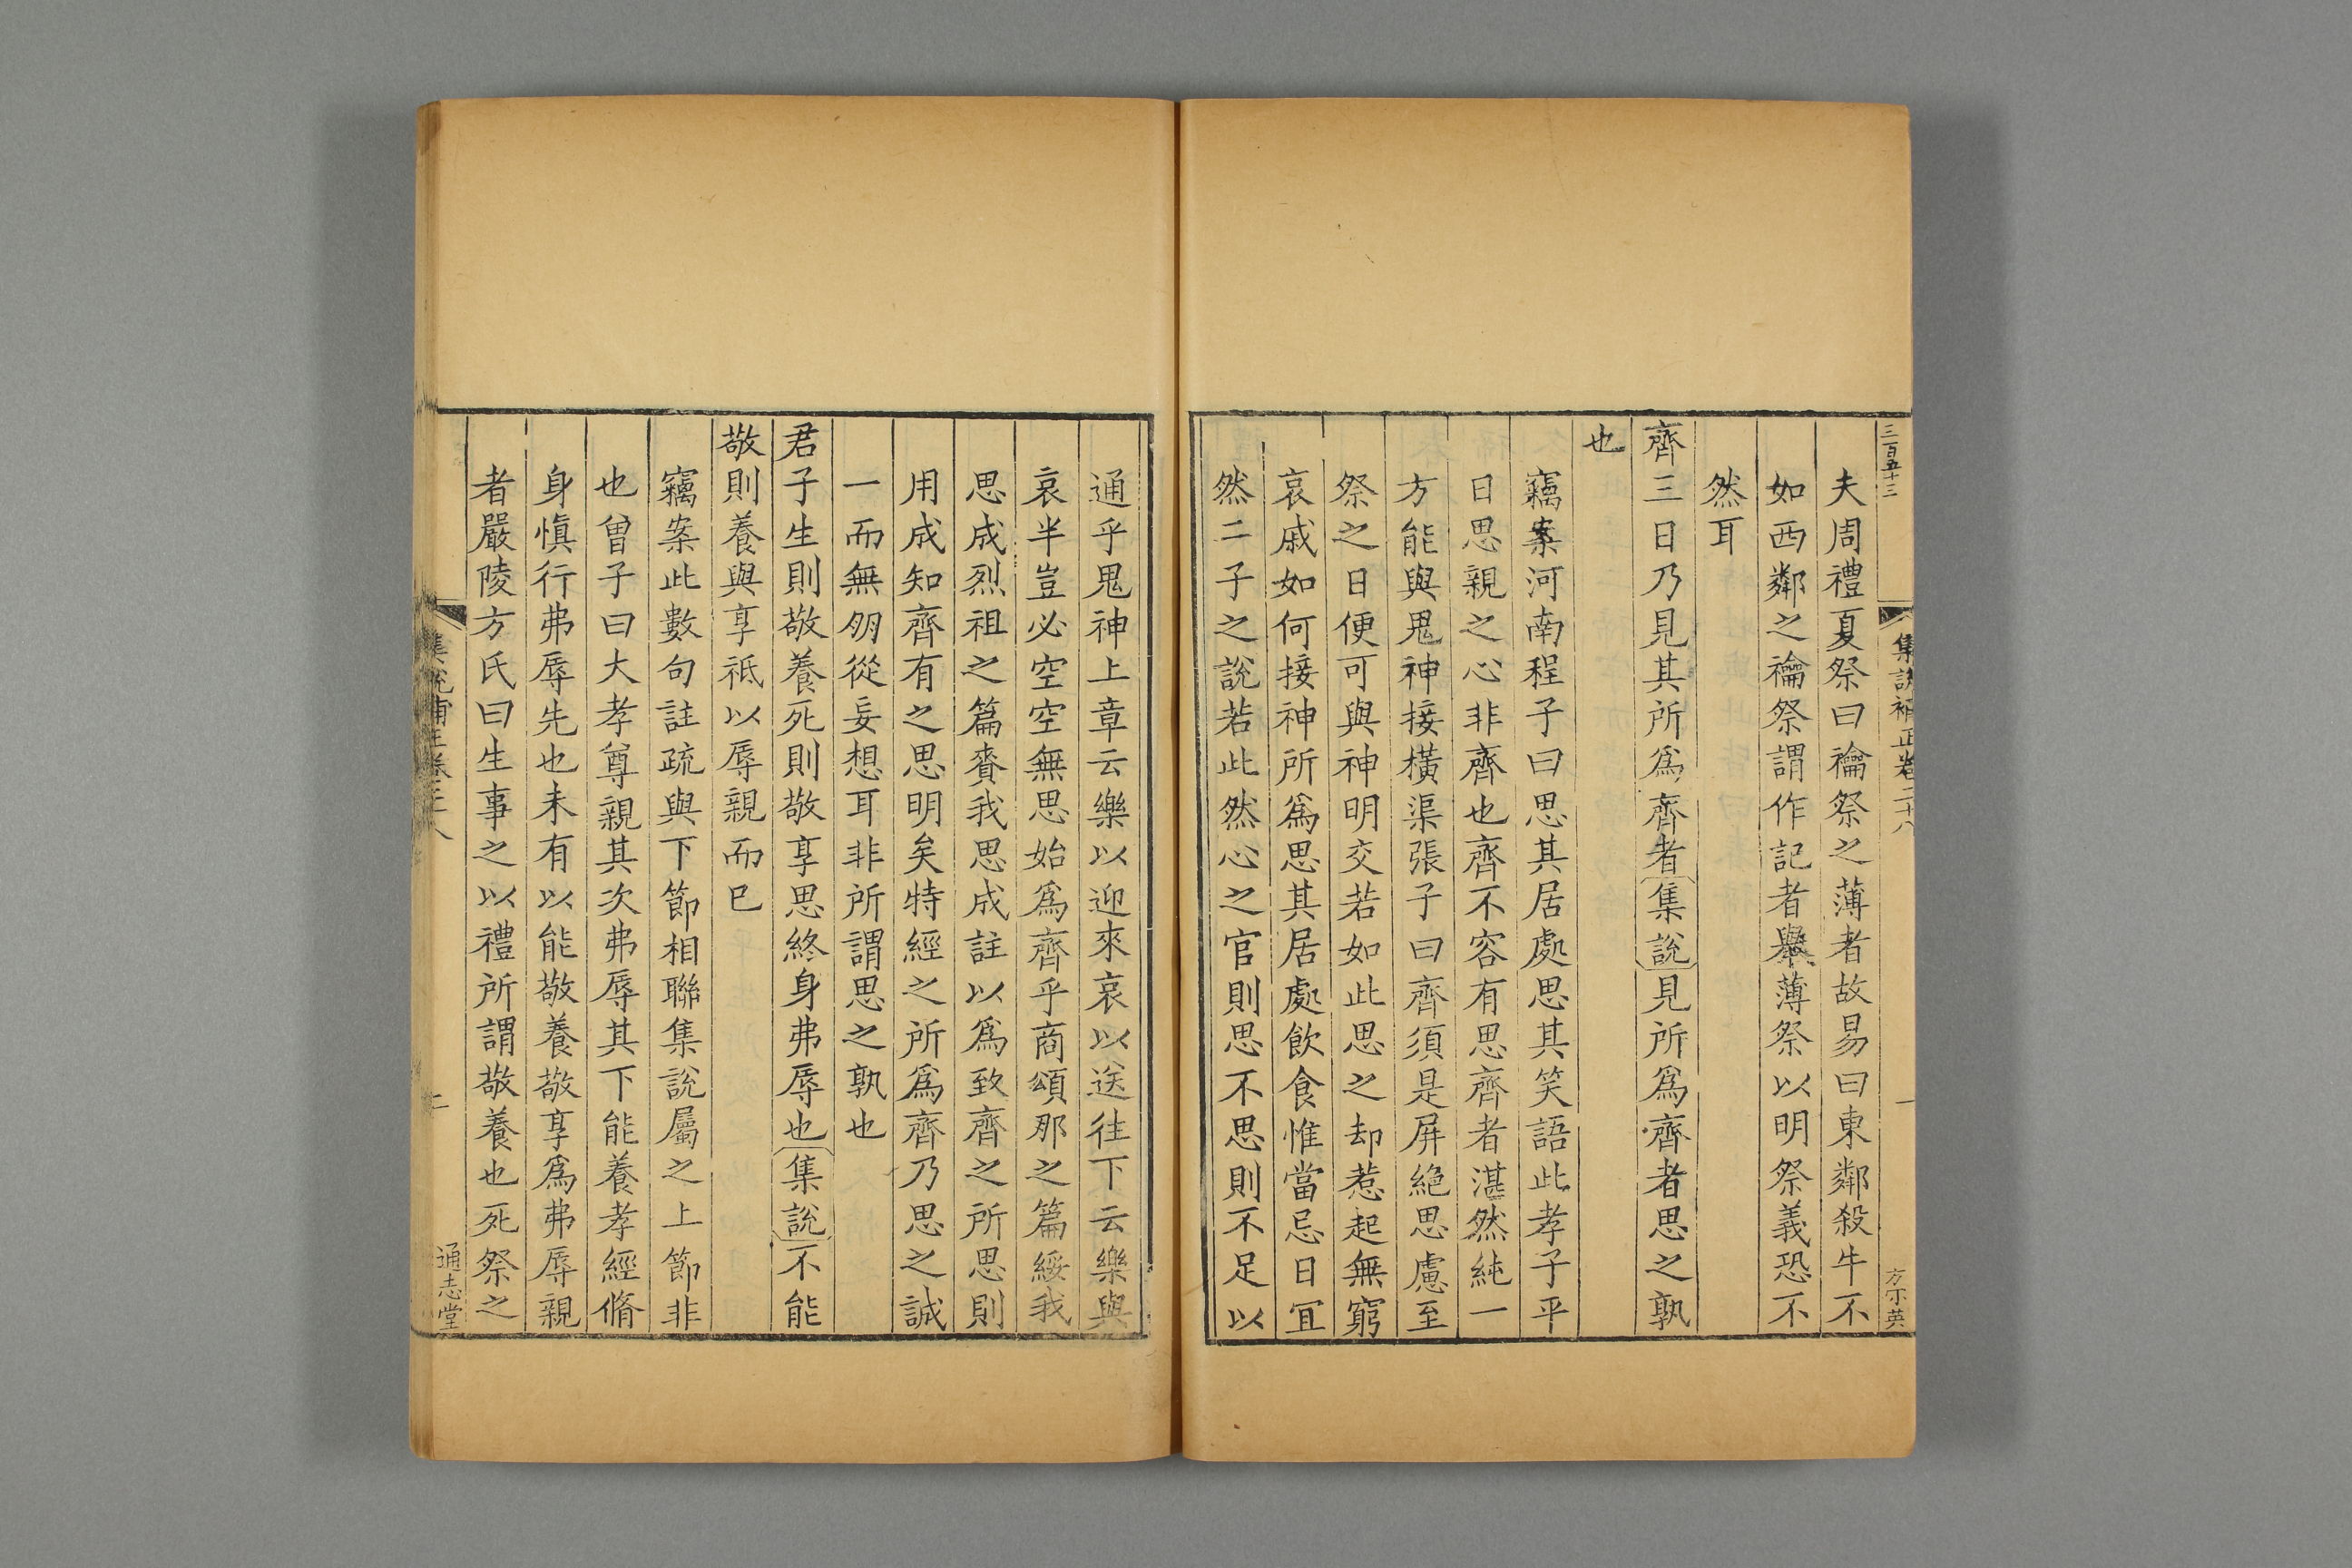 三百五十三
集說補正卷二十八
一
方尒英
夫周禮夏祭曰禴祭之薄者故易曰東鄰殺牛不
如西鄰之禴祭謂作記者舉薄祭以明祭義恐不
然耳
齊三日乃見其所爲齊者集說見所爲齊者思之孰
也
竊案河南程子曰思其居處思其笑語此孝子平
日思親之心非齊也齊不容有思齊者湛然純一
方能與鬼神接橫渠張子曰齊須是屏絶思慮至
祭之日便可與神明交若如此思之却惹起無窮
哀戚如何接神所爲思其居處飲食惟當忌日宜
然二子之說若此然心之官則思不思則不足以
通乎鬼神上章云樂以迎來哀以送往下云樂與
哀半豈必空空無思始爲齊乎商頌那之篇綏我
思成烈祖之篇賚我思成註以爲致齊之所思則
用成知齊有之思明矣特經之所爲齊乃思之誠
一而無朋從妄想耳非所謂思之孰也
君子生則敬養死則敬享思終身弗辱也集說不能
敬則養與享祗以辱親而已
竊案此數句註疏與下節相聯集說屬之上節非
也曾子曰大孝尊親其次弗辱其下能養孝經脩
身愼行弗辱先也未有以能敬養敬享爲弗辱親
者嚴陵方氏曰生事之以禮所謂敬養也死祭之
集說補正卷二十八
二
通志堂